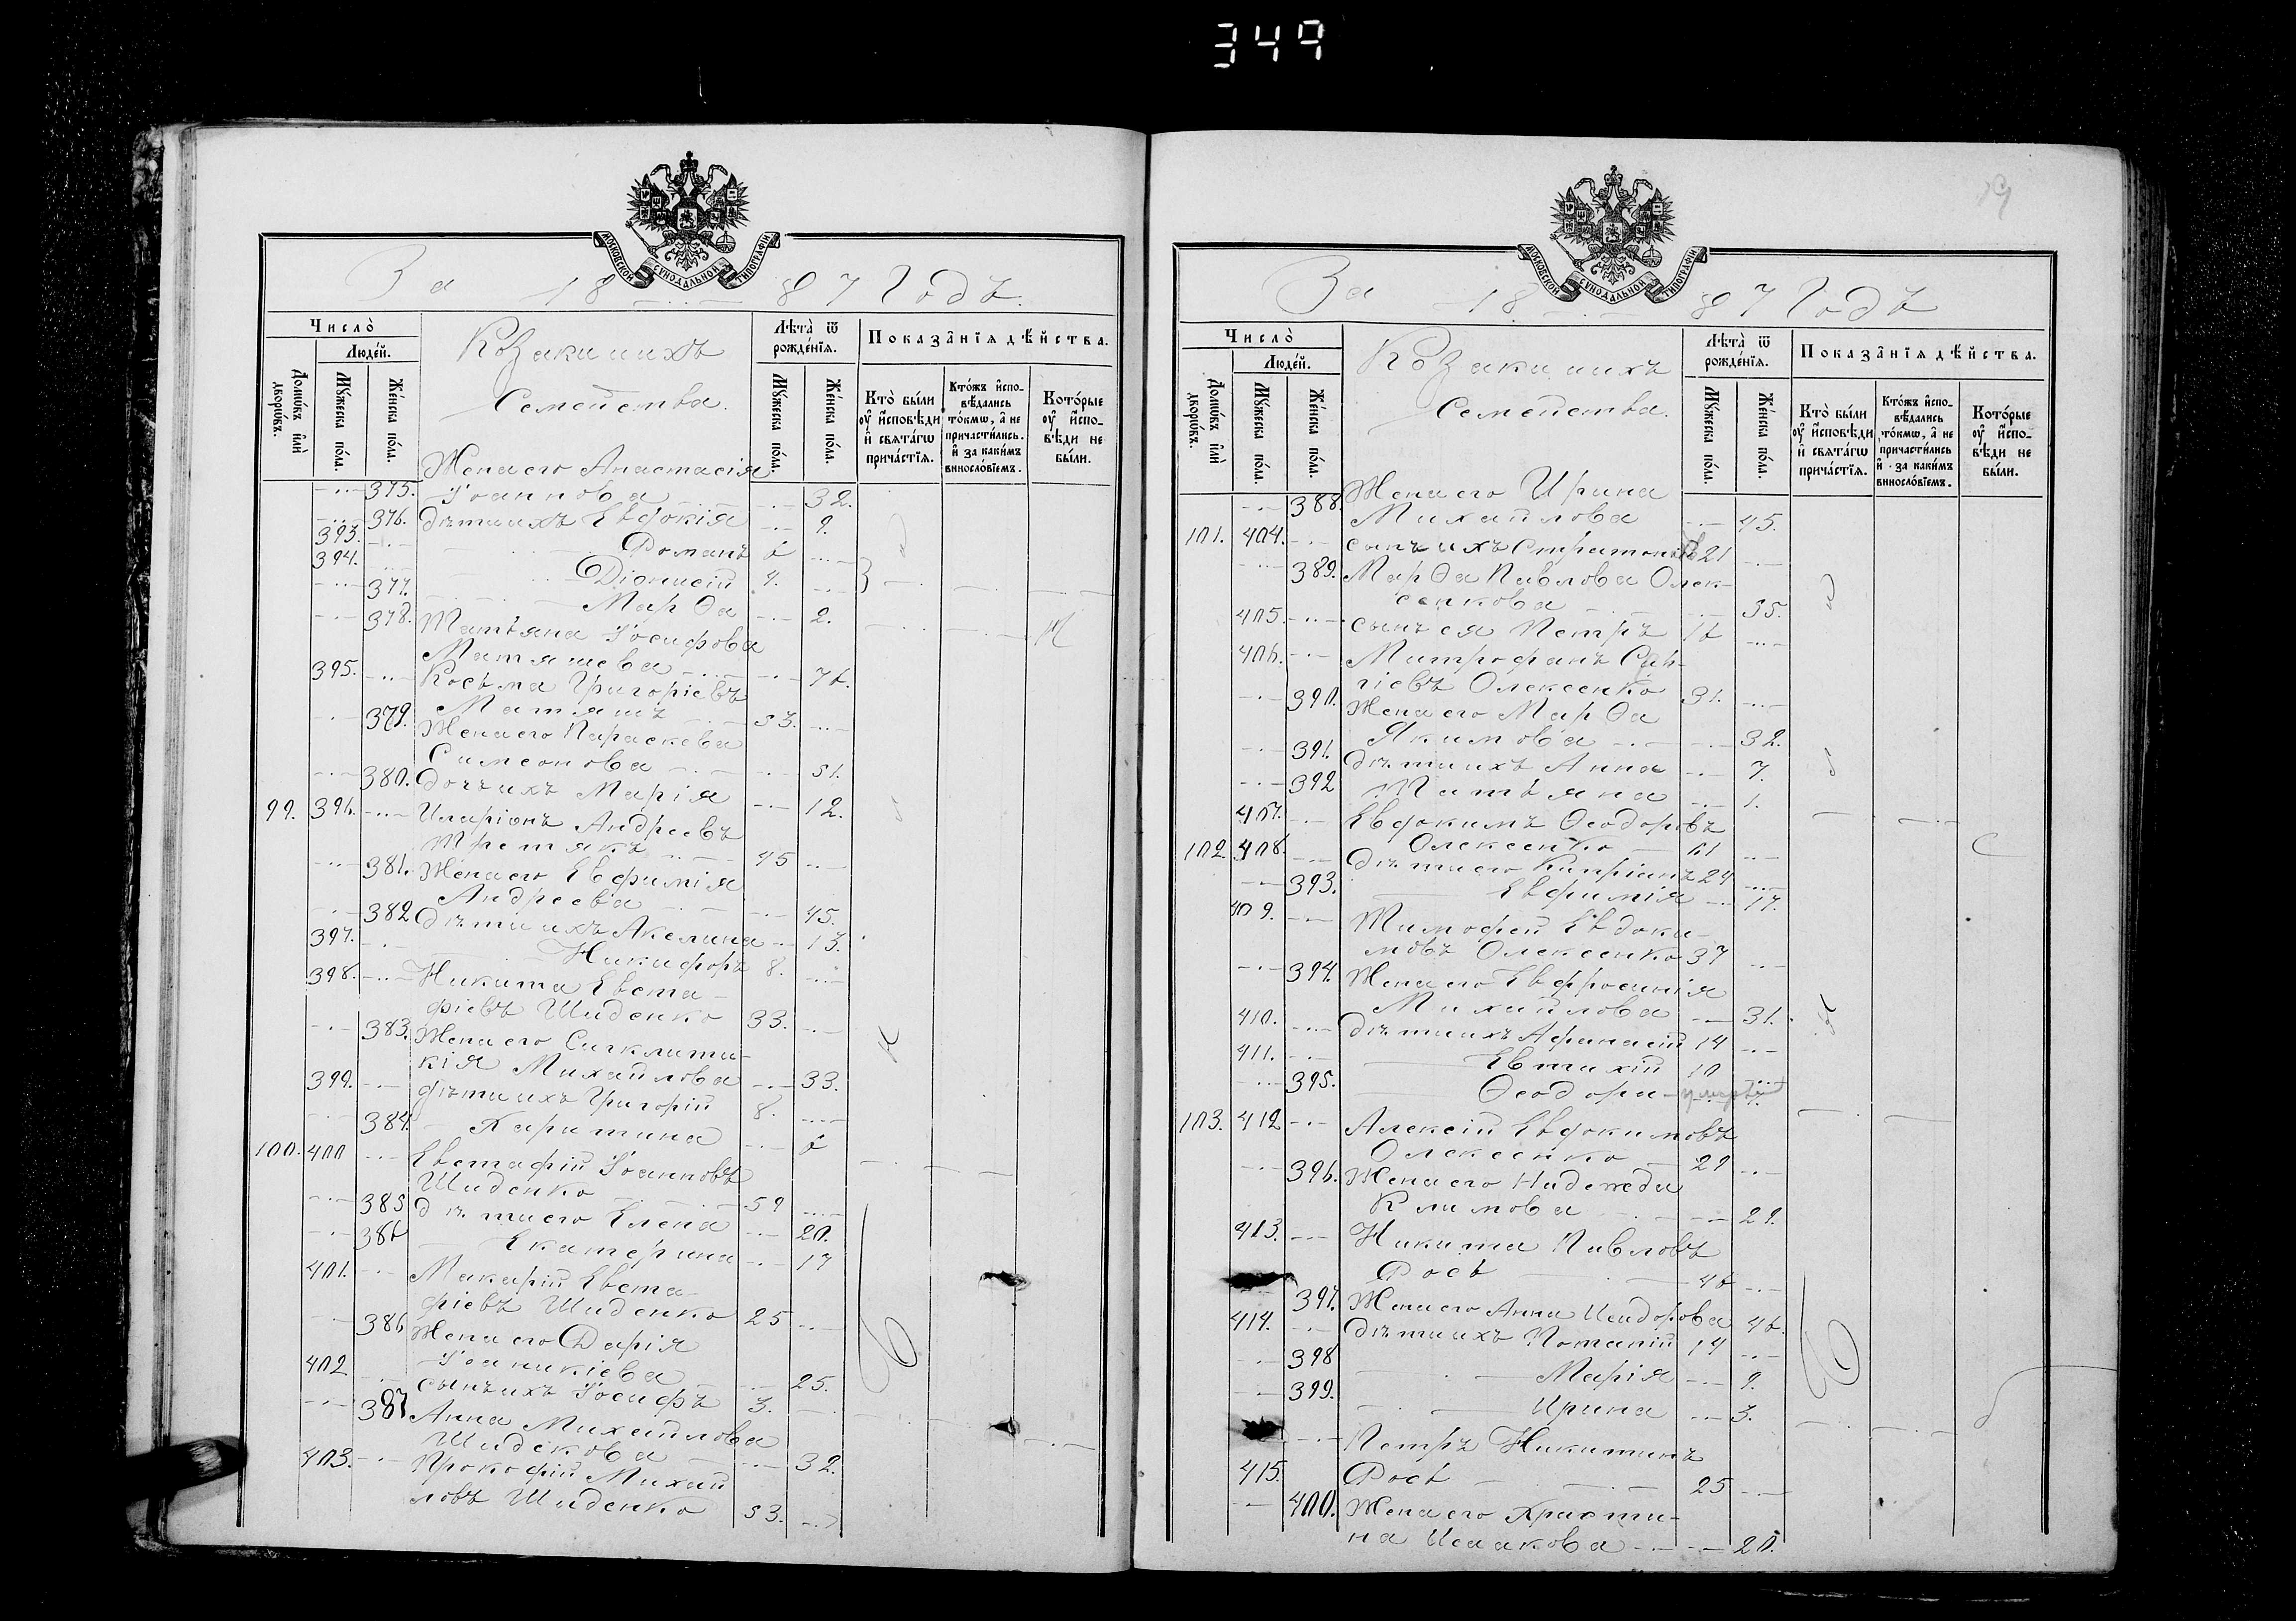 349
МОСКОВСКОЙ СѴНОДАЛЬНОЙ ТИПОГРАФІИ
За 1887 Годъ
Число̀
Люде́й.
Домѡ́въ и҆лѝ дворѡ́въ.
Мꙋ́жеска по́ла.
Же́нска по́ла.
Козакиихъ
Семейства.
Лѣ́та ѿ рожде́нїѧ.
Мꙋ́жеска по́ла.
Же́нска по́ла.
Показа̂нїѧ дѣ́йства.
Кто̀ бы́ли оу҆ и҆сповѣди и҆ свѧта́гѡ прича́стїѧ.
Кто́жъ и҆спо­вѣдались то́кмѡ, а҆ не причасти́лись. и҆ за каки́мъ винословїемъ.
Кото́рые оу҆ и҆спо­вѣди не бы́ли.
375. Жена его Анастасія
Іоаннова 32.
376. дѣти ихъ Евдокія 9.
393. Романъ 6
394. Діонисій 4.
377. Марѳа 2.
378. Татьяна Іосифова
Матяшева 76.
395. Косьма Григоріевъ
Матяшъ 53.
379. Жена его Параскева
Симеонова 51.
380. дочь ихъ Марія 12.
99. 396. Иларіонъ Андреевъ
Третякъ 45
381. Жена его Евфимія
Андреева 45.
382 дѣти ихъ Акелина 13.
397. Никифоръ 8.
398. Никита Евста-
фіевъ Шиденко 33.
383. Жена его Сигклити-
кія Михайлова 33.
399. дѣти ихъ Григорій 8.
384. Харитина 6
100. 400 Евстафій Іоанновъ
Шиденко 59
385 дѣти его Елена 20.
386 Екатерина 17
401. Макарій Евста-
фіевъ Шиденко 25
386 Жена его Дарія
Іоаникіева 25.
402 сынъ ихъ Іосифъ 3.
387 Анна Михайлова
Шидекова 32.
403. Прокофій Михай
ловъ Шиденко 53.
19
МОСКОВСКОЙ СѴНОДАЛЬНОЙ ТИПОГРАФІИ
За 1887 Годъ
Число̀
Люде́й.
Домѡ́въ и҆лѝ дворѡ́въ.
Мꙋ́жеска по́ла.
Же́нска по́ла.
Козакиихъ
Семейства.
Лѣ́та ѿ рожде́нїѧ.
Мꙋ́жеска по́ла.
Же́нска по́ла.
Показа̂нїѧ дѣ́йства.
Кто̀ бы́ли оу҆ и҆сповѣди и҆ свѧта́гѡ прича́стїѧ.
Кто́жъ и҆спо­вѣдались то́кмѡ, а҆ не причасти́лись и҆ за каки́мъ винослові́емъ.
Кото́рые оу҆ и҆спо­вѣди не бы́ли.
388. Жена его Ирина
Михайлова 45.
101. 404. сынъ ихъ Стратоникъ 21
389. Марѳа Павлова Олек-
сенкова 35.
405. сынъ ея Петръ 16
406. Митрофанъ Сер-
гіевъ Олексенко 31.
390. Жена его Марѳа
Якимова 32.
391. дѣти ихъ Анна 7.
392 Татьяна 1.
407. Евдокимъ Ѳеодоровъ
Олексенко 61
102. 408. дѣти его Кипріанъ 24
393. Евфимія 17.
409. Тимофей Евдоки-
мовъ Олексенко 37
394. Жена его Евфросинія
Михайлова 31.
410. дѣти ихъ Афанасій 14
411. Евтихій 10
395. Ѳеодора умерла
103. 412 Алексій Евдокимовъ
Олексенко 29
396. Жена его Надежда
Климова 29.
413. Никита Павловъ
Рось 46
397. Жена его Анна Исидорова 46.
414. дѣти ихъ Потапій 14
398 Марія 9.
399. Ирина 3.
Петръ Никитинъ
415. Рось 25
400. Жена его Христи-
на Исаакова 20.